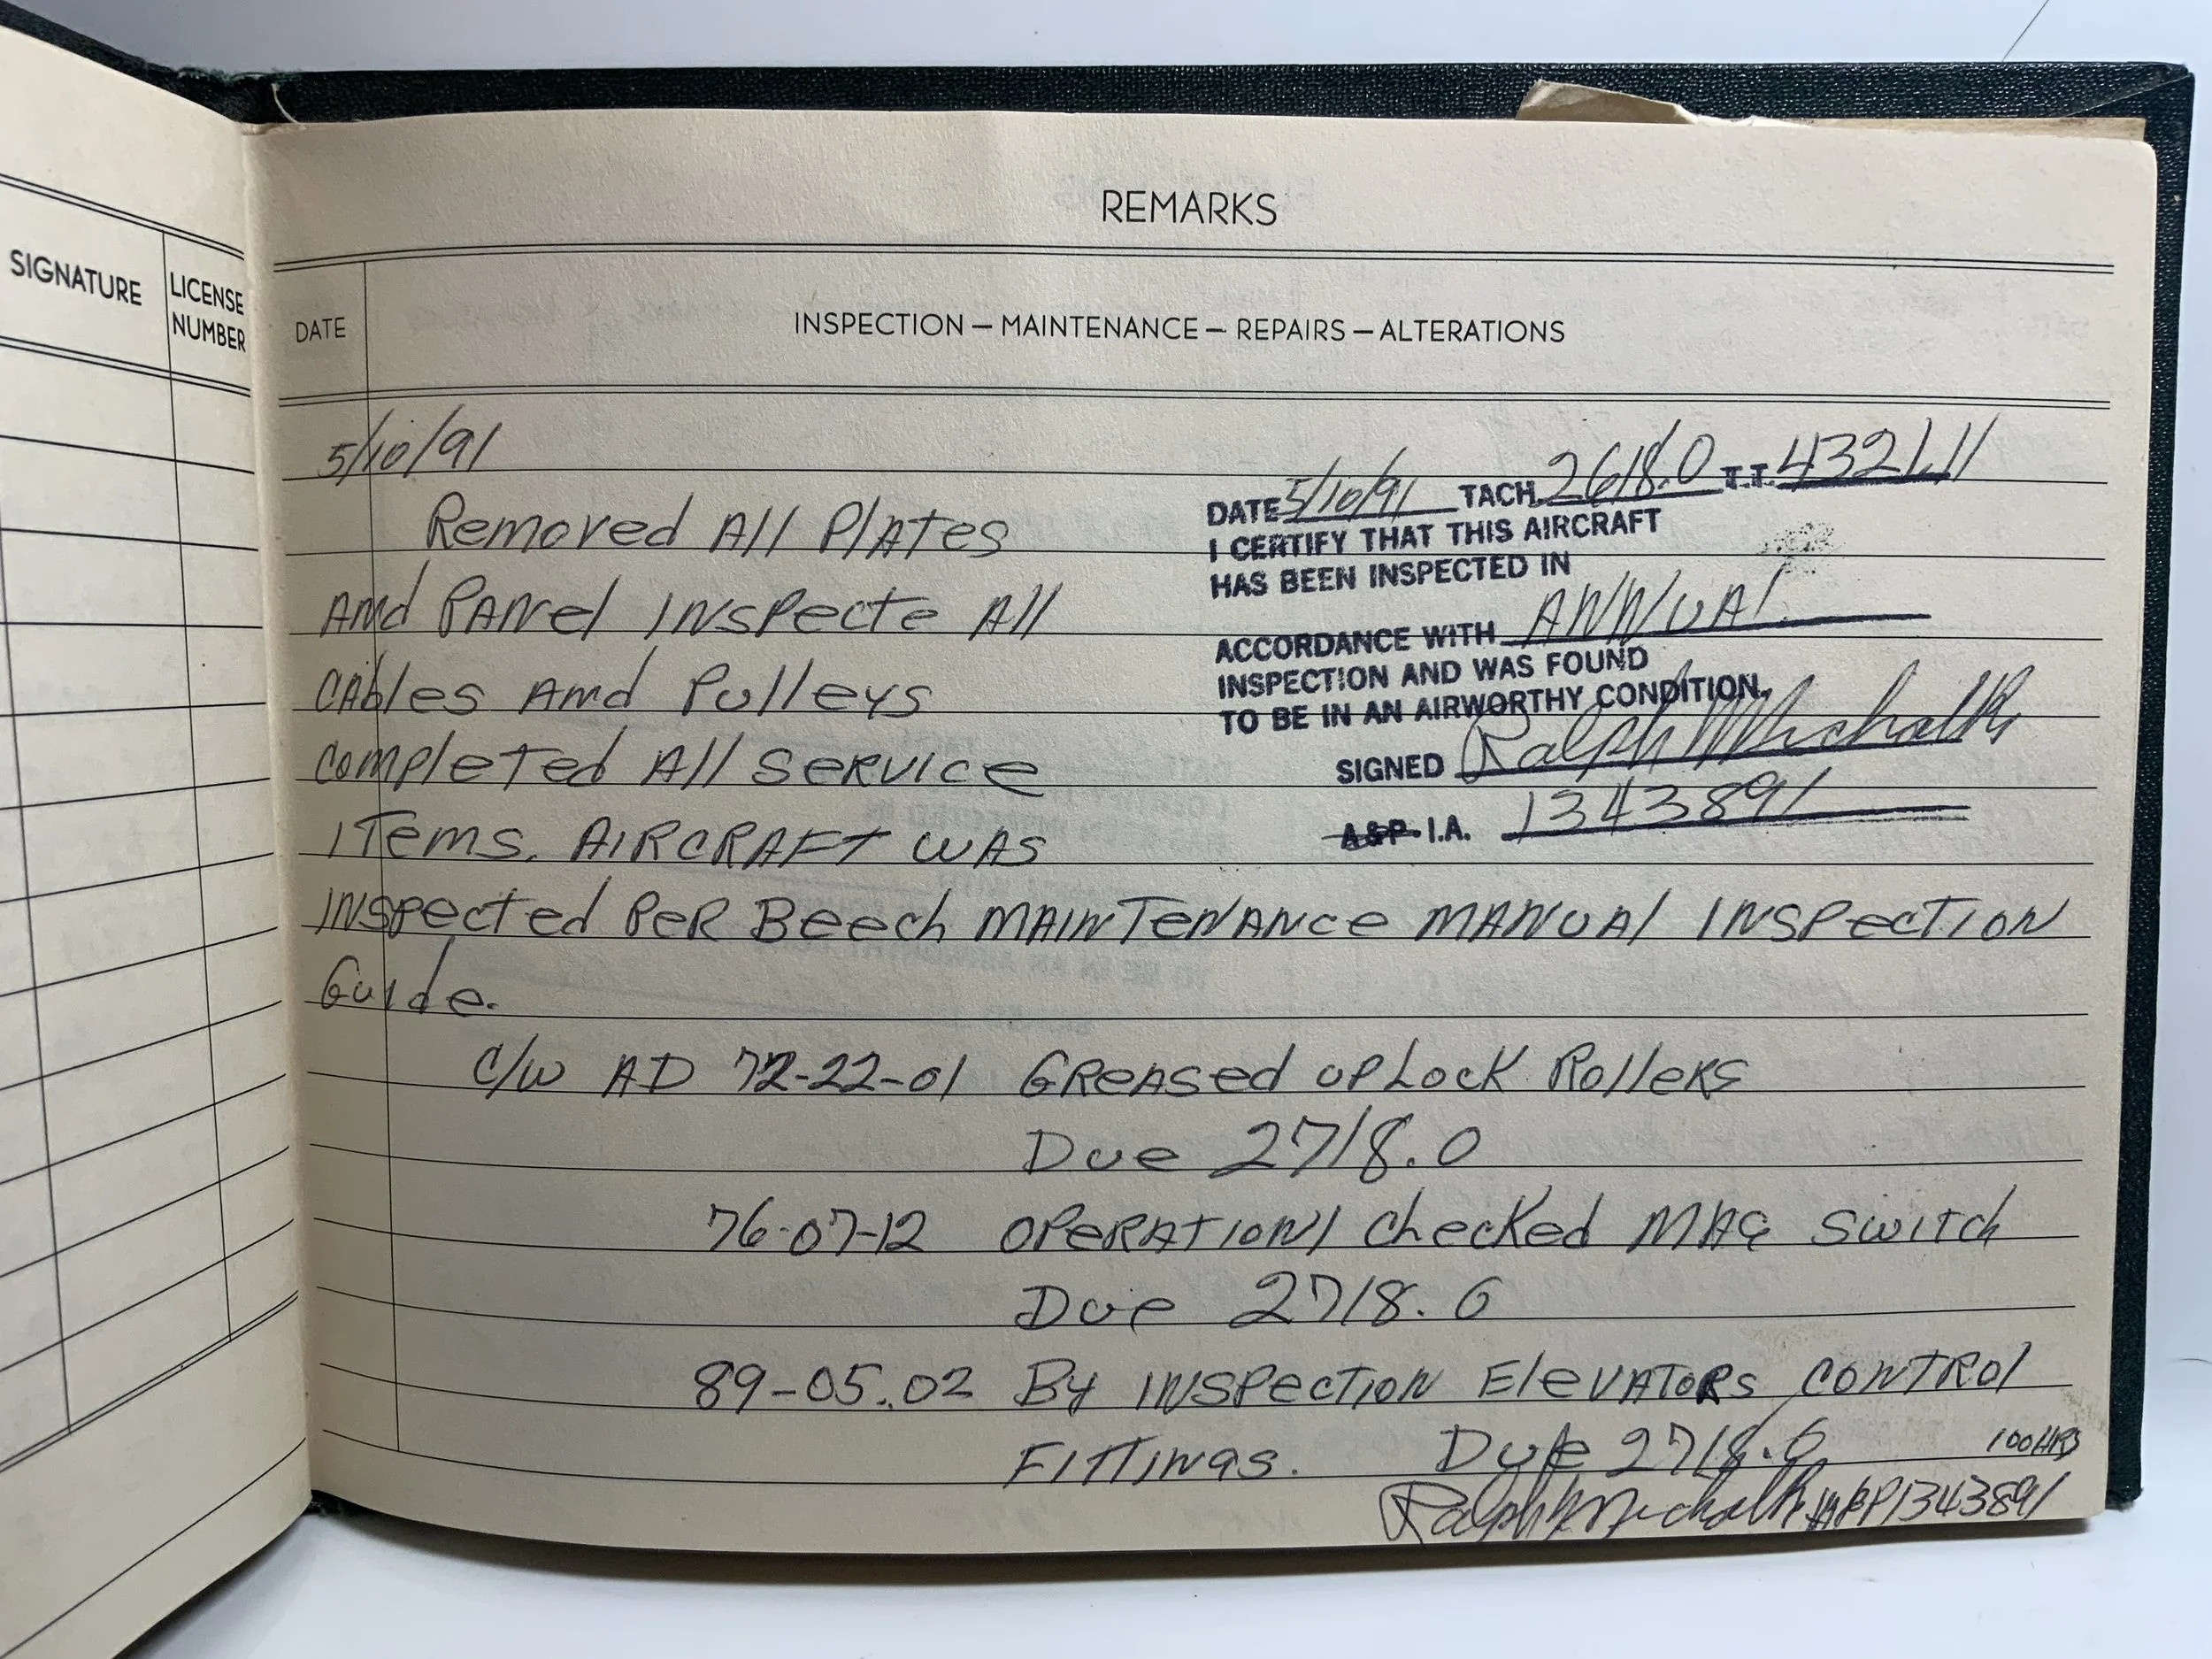 REMARKS
SIGNATURE
LICENSE
NUMBER
DATE
INSPECTION — MAINTENANCE — REPAIRS — ALTERATIONS
5/10/91
Removed All Plates
And Panel Inspecte All
Cables And Pulleys
Completed All Service
Items. Aircraft was
Inspected Per Beech Maintenance Manual Inspection
Guide.
DATE 5/10/91 TACH 2618.0 T.T. 4321.11
I CERTIFY THAT THIS AIRCRAFT
HAS BEEN INSPECTED IN
ACCORDANCE WITH ANNUAL
INSPECTION AND WAS FOUND
TO BE IN AN AIRWORTHY CONDITION.
SIGNED Ralph Michalk
A&P I.A. 1343891
C/W AD 72-22-01 Greased upLock Rollers
Due 2718.0
76-07-12 Operationl Checked Mag Switch
Due 2718.0
89-05.02 By Inspection Elevators Control
Fittings. Due 2718.0 100 HRS
Ralph Michalk A&P 1343891